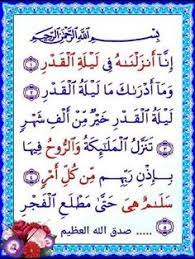 بِسْمِ اللَّهِ الرَّحْمَٰنِ الرَّحِيمِ
إِنَّا أَنزَلْنَٰهُ فِى لَيْلَةِ الْقَدْرِ ١
وَمَا أَدْرَىٰكَ مَا لَيْلَةُ الْقَدْرِ ٢
لَيْلَةُ الْقَدْرِ خَيْرٌ مِّنْ أَلْفِ شَهْرٍ ٣
تَنَزَّلُ الْمَلَٰٓئِكَةُ وَالرُّوحُ فِيهَا
بِإِذْنِ رَبِّهِم مِّن كُلِّ أَمْرٍ ٤
سَلَٰمٌ هِىَ حَتَّىٰ مَطْلَعِ الْفَجْرِ ٥
..... صدق الله العظيم